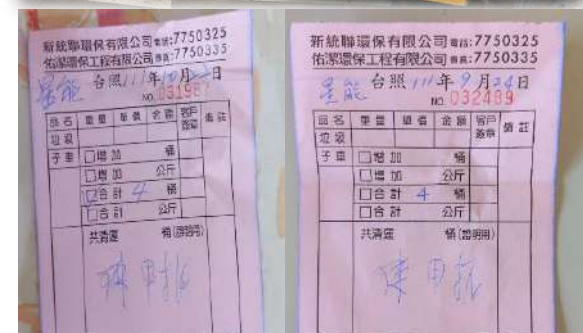 新統聯環保有限公司 電話:7750325
佑潔環保工程有限公司 傳真:7750335
星能 台照111年10月 日
NO.
品名 重量 單價 金額 客戶簽章 備註
垃圾
子車 □增加 桶
□增加 公斤
□合計 4 桶
□合計 公斤
共清運 桶(證明用)
新統聯環保有限公司 電話:7750325
佑潔環保工程有限公司 傳真:7750335
星能 台照111年9月24日
NO 032489
品名 重量 單價 金額 客戶簽章 備註
垃圾
子車 □增加 桶
□增加 公斤
□合計 4 桶
□合計 公斤
共清運 桶(證明用)